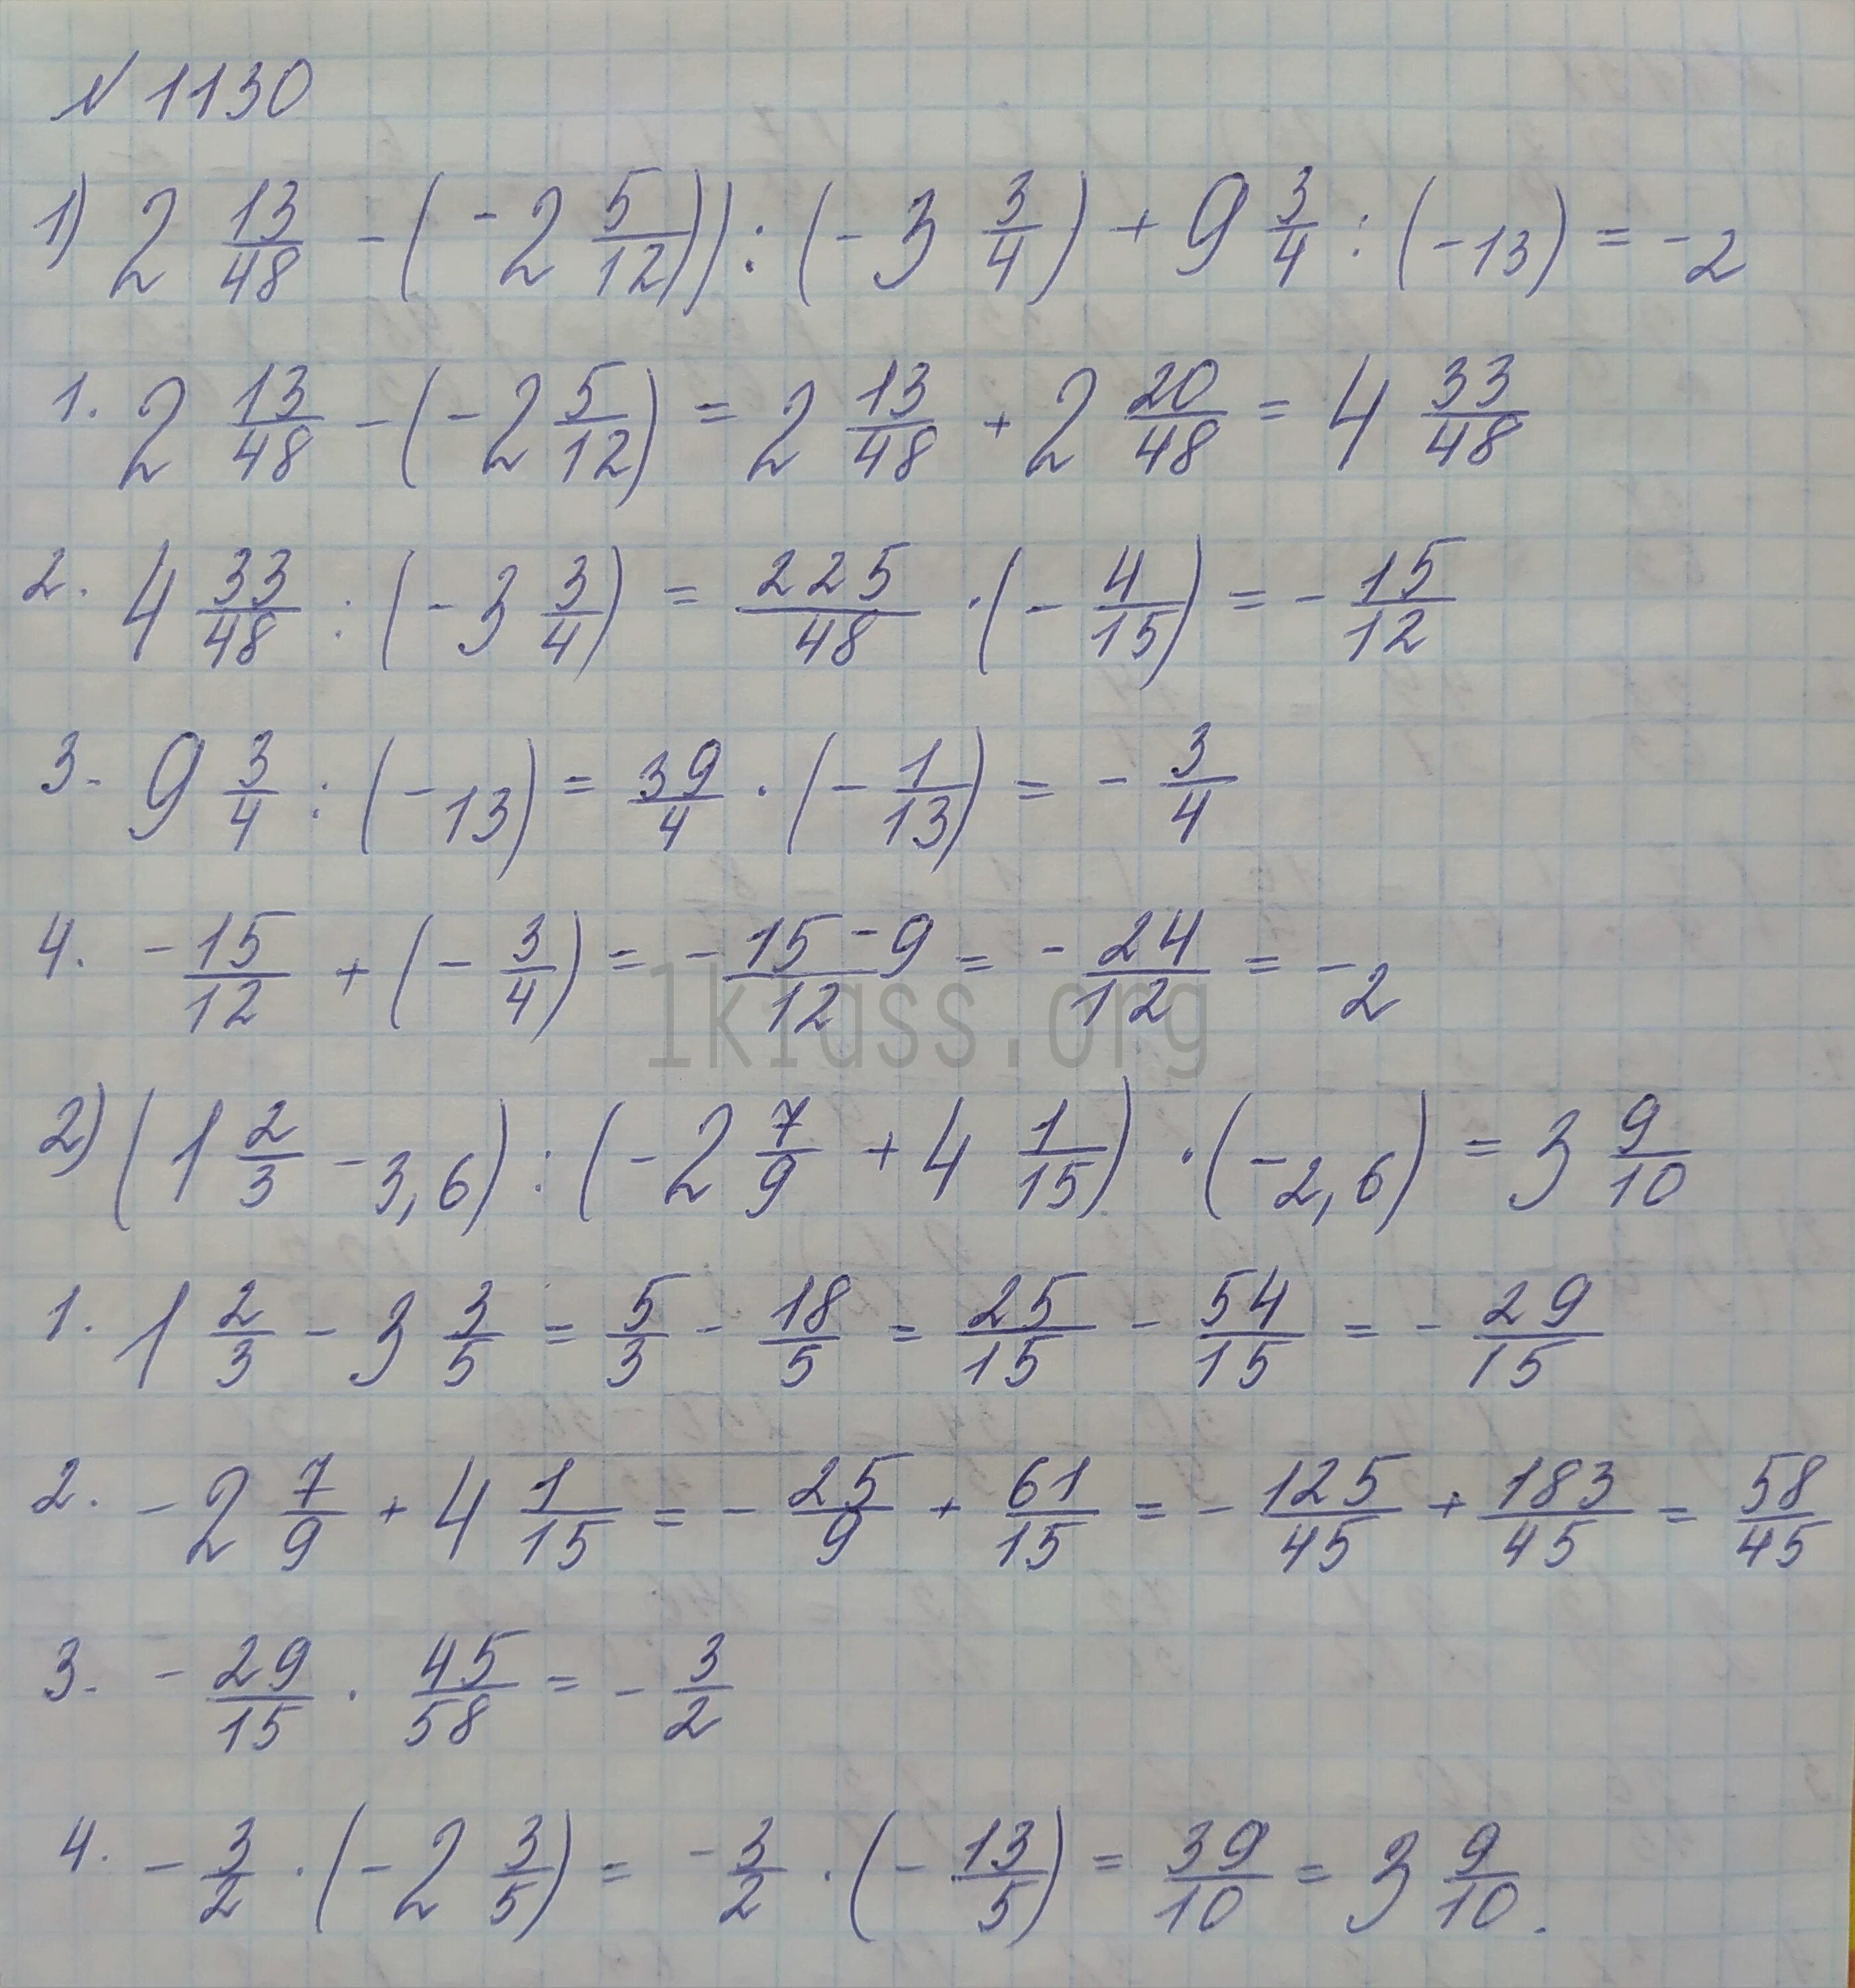 № 1130
1) 2 13/48 - (-2 5/12)) : (-3 3/4) + 9 3/4 : (-13) = -2
1. 2 13/48 - (-2 5/12) = 2 13/48 + 2 20/48 = 4 33/48
2. 4 33/48 : (-3 3/4) = 225/48 · (-4/15) = -15/12
3. 9 3/4 : (-13) = 39/4 · (-1/13) = -3/4
4. -15/12 + (-3/4) = (-15-9)/12 = -24/12 = -2
1klass.org
2) (1 2/3 - 3,6) : (-2 7/9 + 4 1/15) · (-2,6) = 3 9/10
1. 1 2/3 - 3 3/5 = 5/3 - 18/5 = 25/15 - 54/15 = -29/15
2. -2 7/9 + 4 1/15 = -25/9 + 61/15 = -125/45 + 183/45 = 58/45
3. -29/15 · 45/58 = -3/2
4. -3/2 · (-2 3/5) = -3/2 · (-13/5) = 39/10 = 3 9/10.